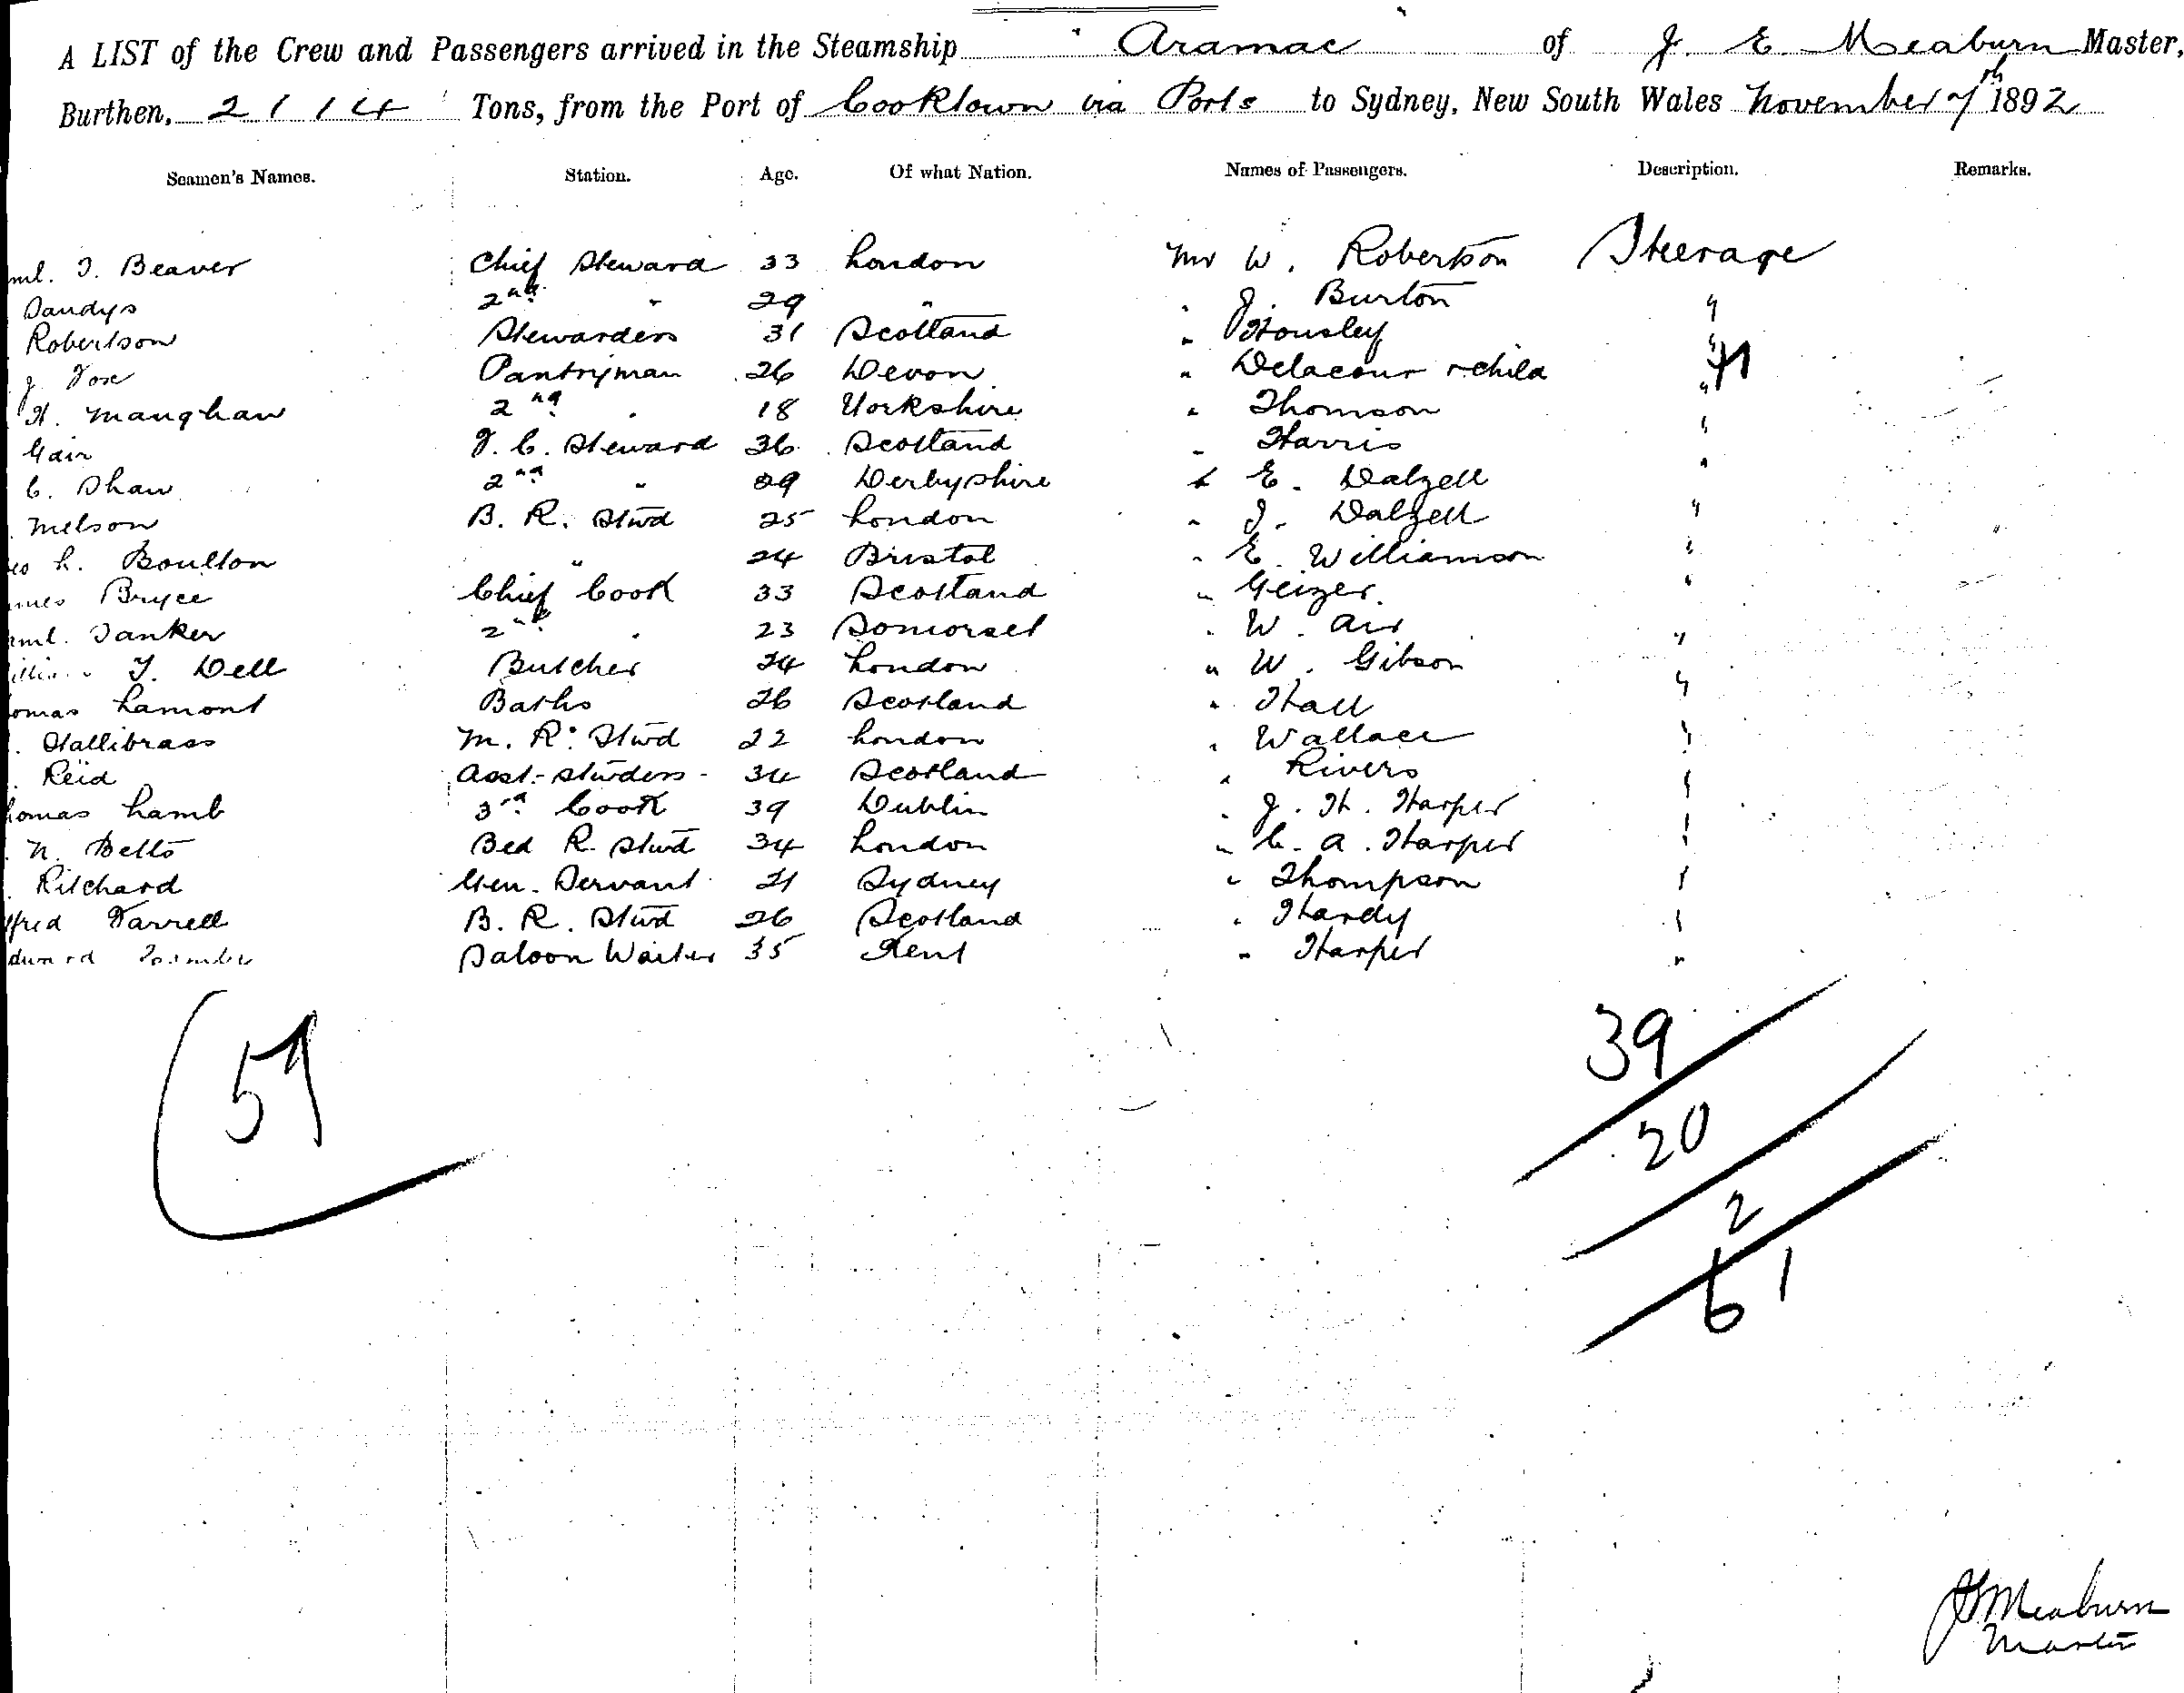 A LIST of the Crew and Passengers arrived in the Steamship Aramac of J. E. Meaburn Master,
Burthen, 2114 Tons, from the Port of Cooktown via Ports to Sydney, New South Wales November 7th 1892
Seamen's Names. Station. Age. Of what Nation. Names of Passengers. Description. Remarks.
ml. J. Beaver Chief Steward 33 London Mr W. Robertson Steerage
Sandys 2nd " 29 " " J. Burton "
Robertson Stewardess 31 Scotland " Housley "
J. Fox Pantryman 26 Devon " Delacour & child "
H. Maughan 2nd " 18 Yorkshire " Thomson "
Gair F. C. Steward 36 Scotland " Harris "
C. Shaw 2nd " 29 Derbyshire " E. Dalzell
Melson B. R. Stwd 25 London " J. Dalzell "
eo L. Boulton " 24 Bristol " E. Williamson "
ames Bryce Chief Cook 33 Scotland " Geizer. "
aml. Tanker 2nd " 23 Somerset " W. Air "
illiam T. Dell Butcher 24 London " W. Gibson "
omas Lamont Baths 26 Scotland " Hall "
. Hallibrass M. R. Stwd 22 London " Wallace "
. Reid Asst. Stwdess 34 Scotland " Rivers "
homas Lamb 3rd Cook 39 Dublin " J. H. Harper "
. N. Betts Bed R. Stwd 34 London " C. A. Harper "
. Ritchard Gen. Servant 21 Sydney " Thompson "
lfred Farrell B. R. Stwd 26 Scotland " Hardy "
dward Saloon Waiter 35 Kent " Harper "
59 39
20
2
61
J E Meaburn
Master